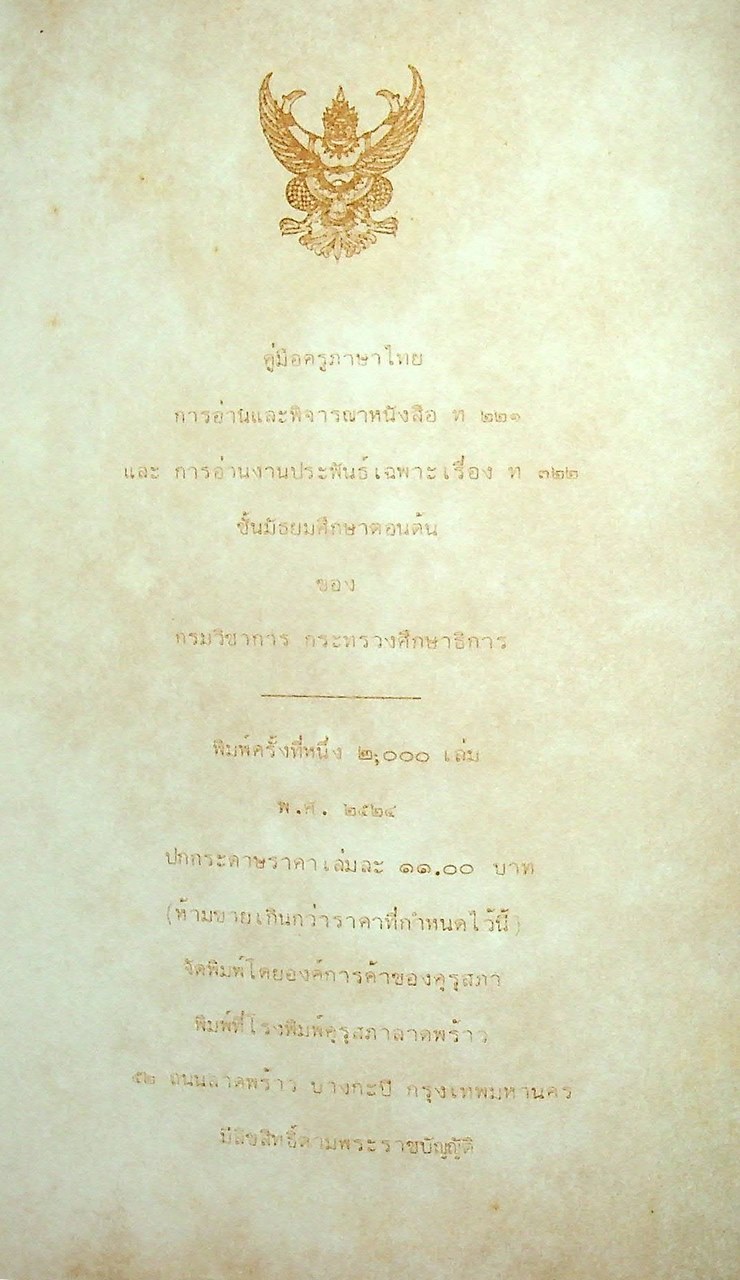 คู่มือครูภาษาไทย
การอ่านและพิจารณาหนังสือ ท ๒๒๑
และ การอ่านงานประพันธ์เฉพาะเรื่อง ท ๓๒๒
ชั้นมัธยมศึกษาตอนต้น
ของ
กรมวิชาการ กระทรวงศึกษาธิการ
พิมพ์ครั้งที่หนึ่ง ๒,๐๐๐ เล่ม
พ.ศ. ๒๕๒๔
ปกกระดาษราคาเล่มละ ๑๑.๐๐ บาท
(ห้ามขายเกินกว่าราคาที่กำหนดไว้นี้)
จัดพิมพ์โดยองค์การค้าของคุรุสภา
พิมพ์ที่โรงพิมพ์คุรุสภาลาดพร้าว
๕๒ ถนนลาดพร้าว บางกะปิ กรุงเทพมหานคร
มีลิขสิทธิ์ตามพระราชบัญญัติ